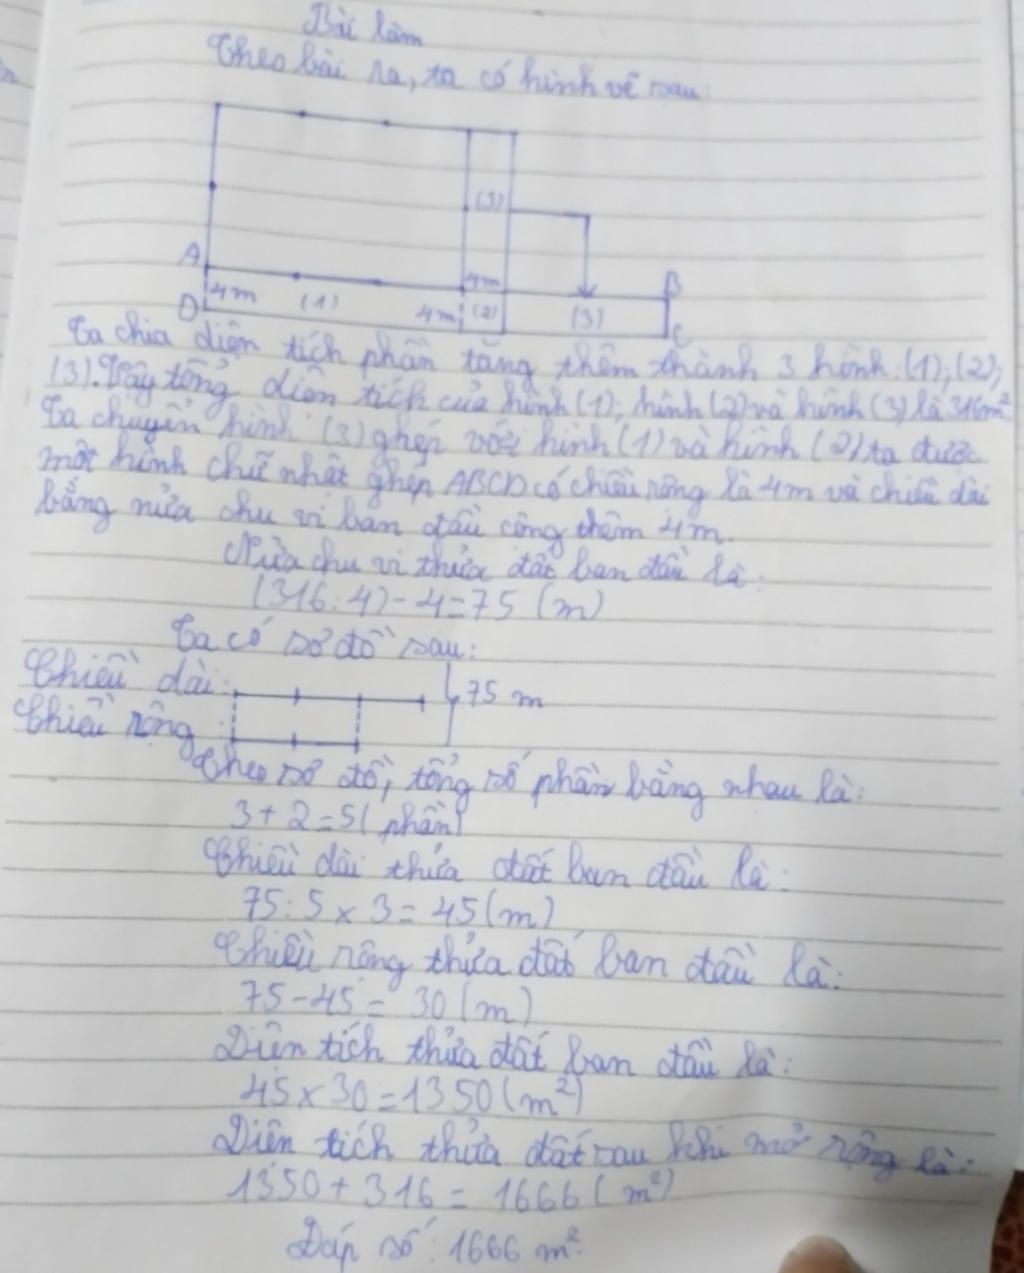 Bài làm
Theo bài ra, ta có hình vẽ sau:
(3)
A
4m
B
4m
(1)
4m
(2)
(3)
D
C
Ta chia diện tích phần tăng thêm thành 3 hình (1); (2);
(3). Vậy tổng diện tích của hình (1); hình (2) và hình (3) là 316m²
Ta chuyển hình (3) ghép với hình (1) và hình (2) ta được
một hình chữ nhật ghép ABCD có chiều rộng là 4m và chiều dài
bằng nửa chu vi ban đầu cộng thêm 4m.
Nửa chu vi thửa đất ban đầu là:
(316:4) - 4 = 75 (m)
Ta có sơ đồ sau:
Chiều dài:
75 m
Chiều rộng:
Theo sơ đồ, tổng số phần bằng nhau là:
3 + 2 = 5 (phần)
Chiều dài thửa đất ban đầu là:
75 : 5 x 3 = 45 (m)
Chiều rộng thửa đất ban đầu là:
75 - 45 = 30 (m)
Diện tích thửa đất ban đầu là:
45 x 30 = 1350 (m²)
Diện tích thửa đất sau khi mở rộng là:
1350 + 316 = 1666 (m²)
Đáp số: 1666 m².